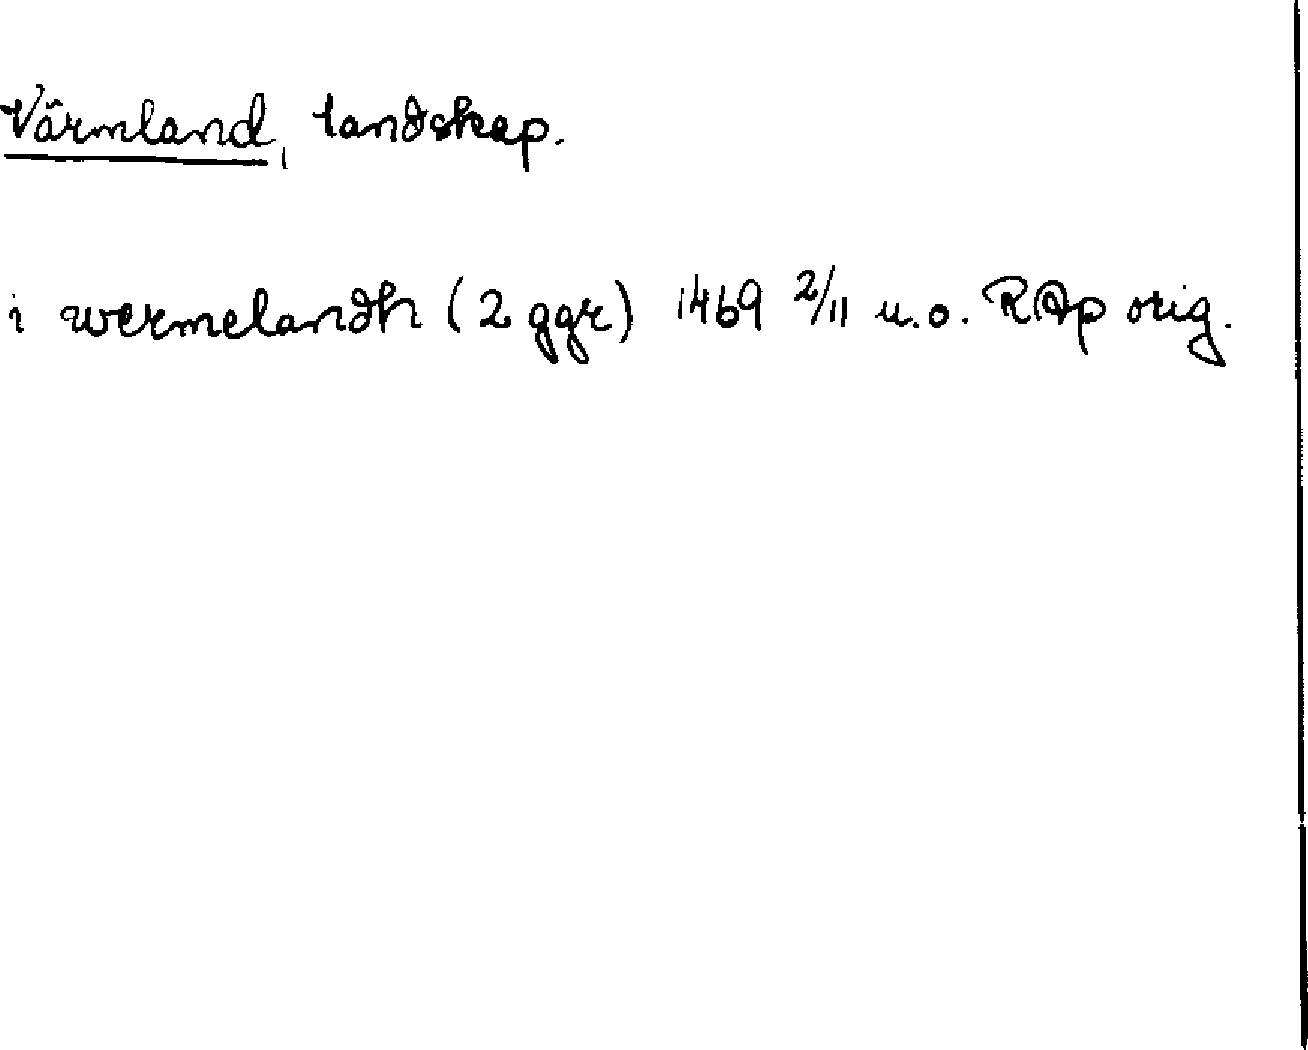 Värmland, landskap.
i wermelandh (2 ggr) 1469 2/11 u.o. RAp orig.